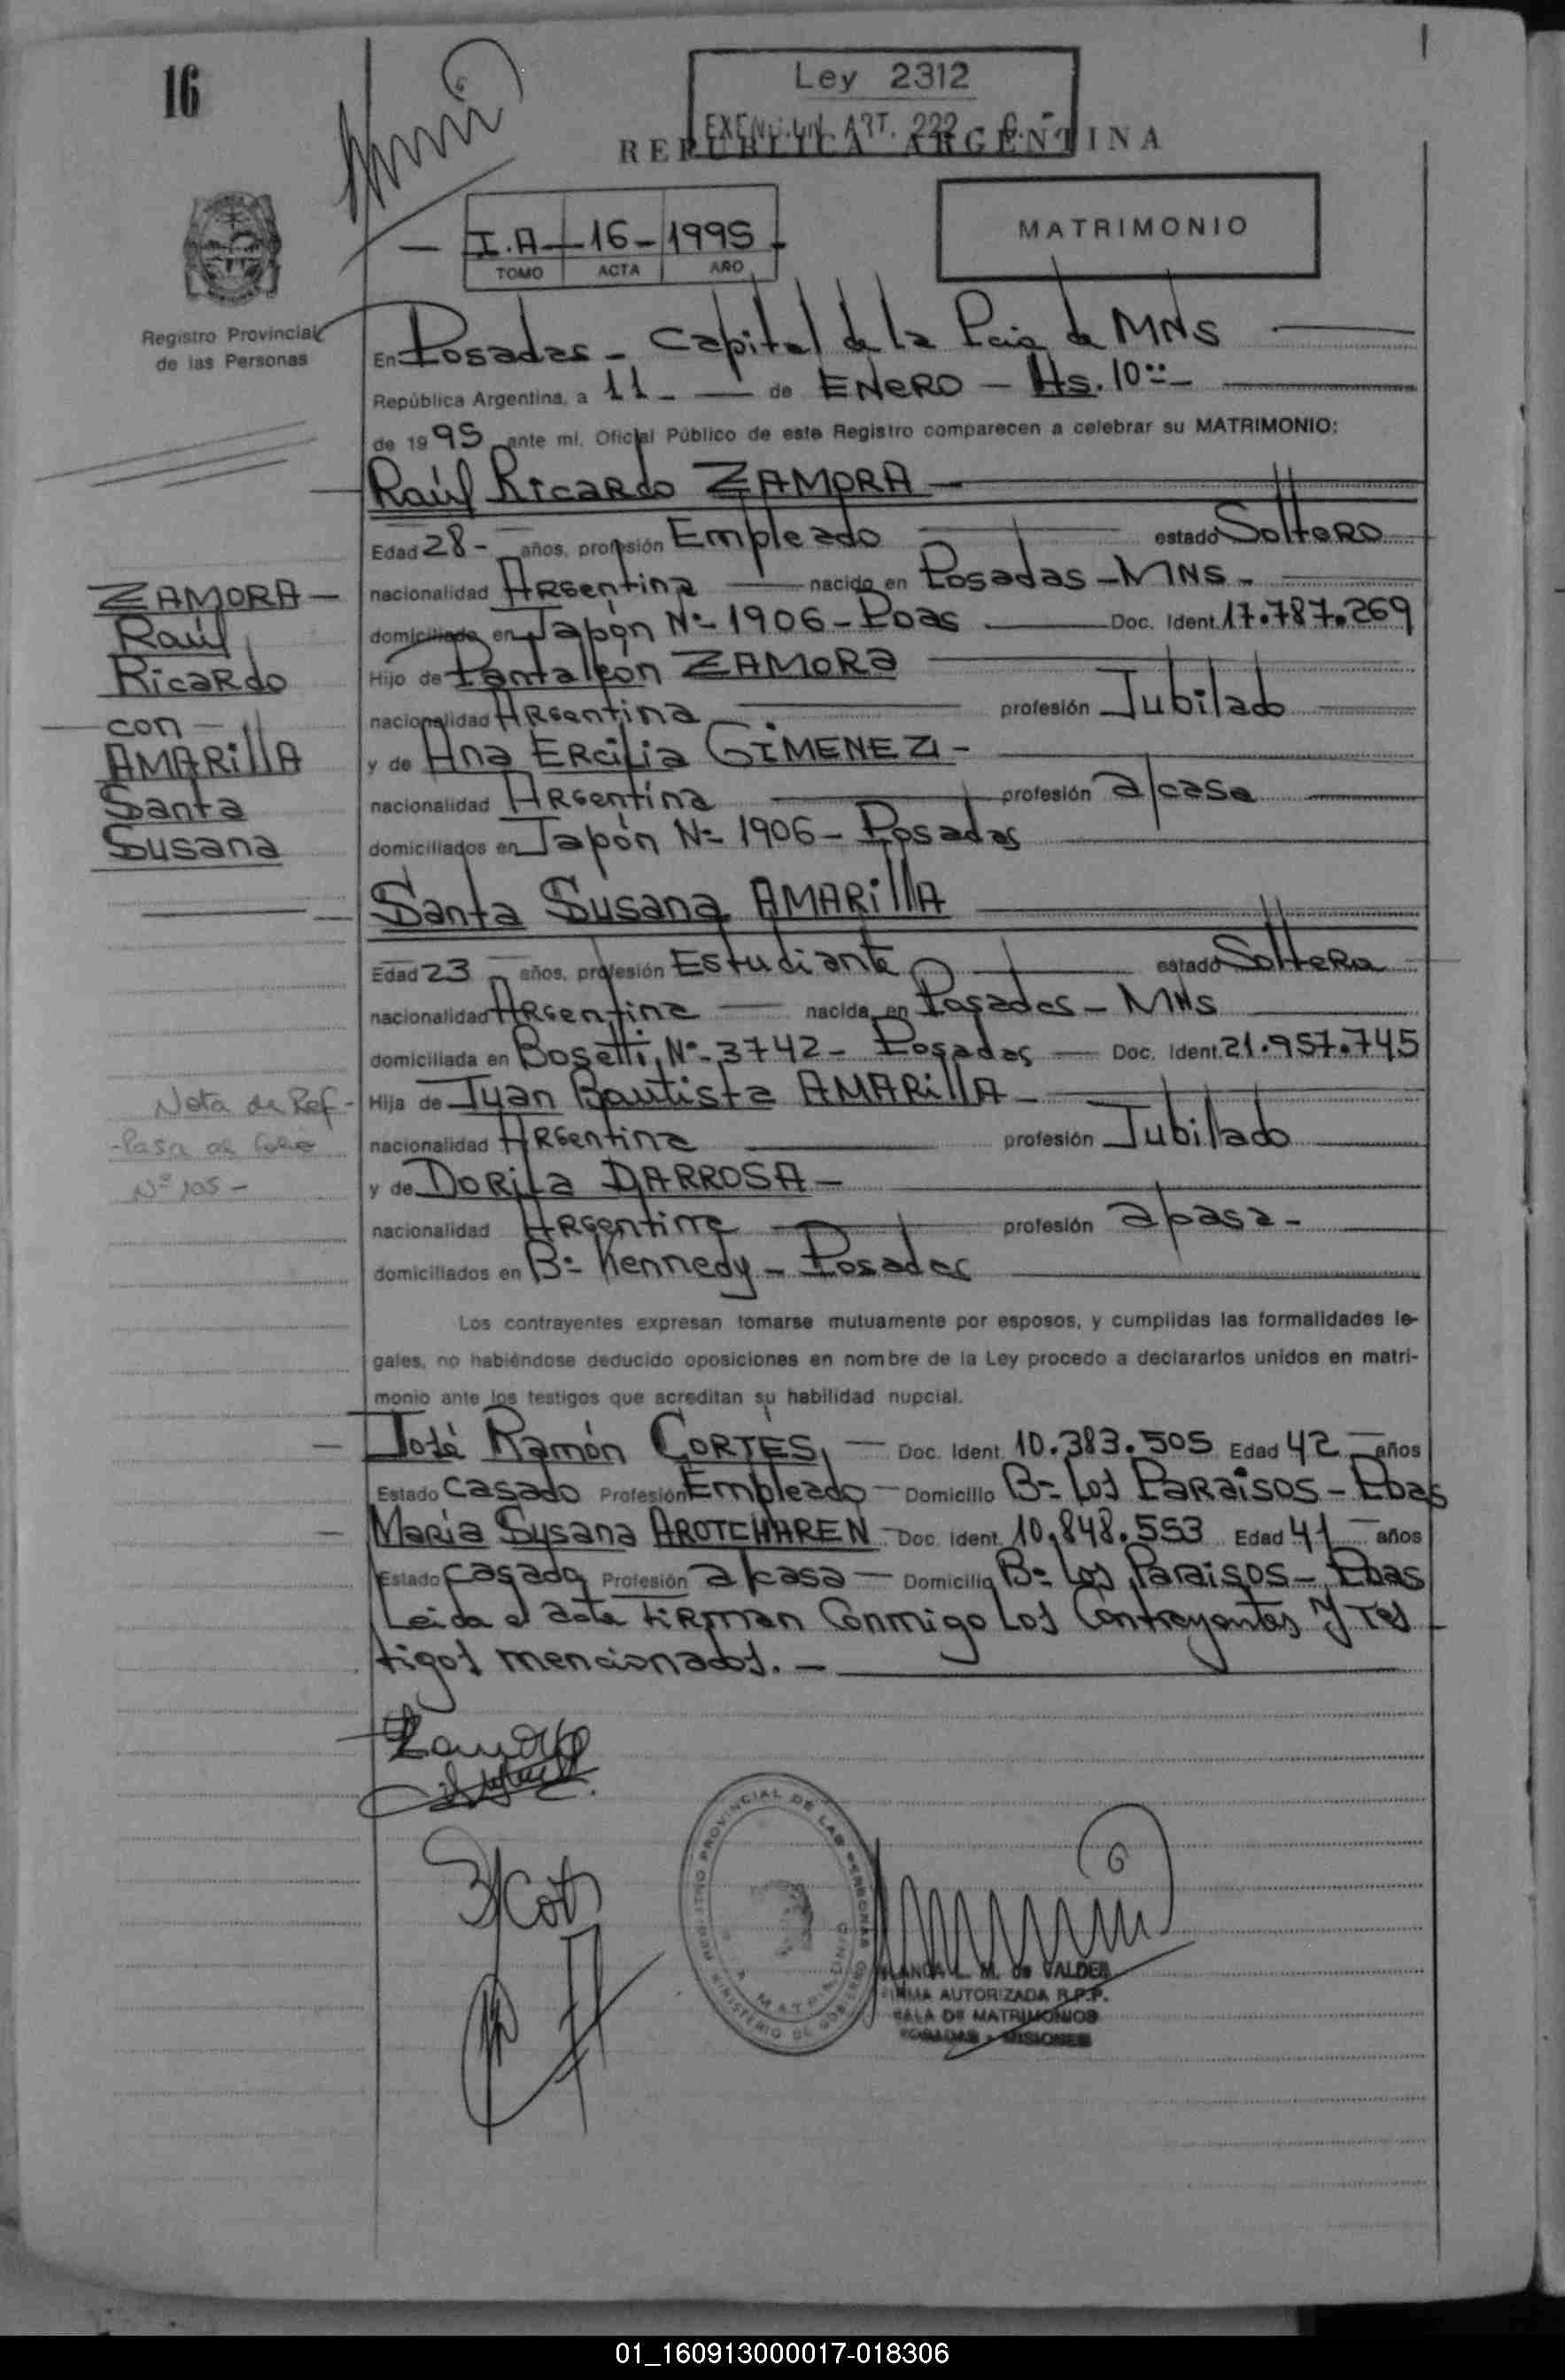 16
Ley 2312
EXENCION ART. 222
REPUBLICA ARGENTINA
I.A - 16 - 1995
TOMO ACTA AÑO
MATRIMONIO
Registro Provincial
de las Personas
En Posadas - Capital de la Pcia de MNS
República Argentina, a 11 - de ENERO - Hs. 10:: -
de 1995 ante mí, Oficial Público de este Registro comparecen a celebrar su MATRIMONIO:
Raúl Ricardo ZAMORA
Edad 28 - años, profesión Empleado estado Soltero
nacionalidad Argentina nacido en Posadas - MNS -
domiciliado en Japón Nº 1906 - Pdas Doc. Ident. 17.787.269
Hijo de Pantaleon ZAMORA
nacionalidad Argentina profesión Jubilado
y de Ana Ercilia GIMENEZ -
nacionalidad Argentina profesión a/casa
domiciliados en Japón Nº 1906 - Posadas
ZAMORA -
Raúl
Ricardo
con
AMARILLA
Santa
Susana
Santa Susana AMARILLA
Edad 23 - años, profesión Estudiante estado Soltera
nacionalidad Argentina nacida en Posadas - MNS
domiciliada en Bosetti Nº 3742 - Posadas Doc. Ident. 21.957.745
Hija de Juan Bautista AMARILLA -
nacionalidad Argentina profesión Jubilado
y de Dorila DARROSA -
nacionalidad Argentina profesión a/casa -
domiciliados en Bº Kennedy - Posadas
Nota de Ref -
- Pasa al folio
Nº 105 -
Los contrayentes expresan tomarse mutuamente por esposos, y cumplidas las formalidades le-
gales, no habiéndose deducido oposiciones en nombre de la Ley procedo a declararlos unidos en matri-
monio ante los testigos que acreditan su habilidad nupcial.
José Ramón CORTES, - Doc. Ident. 10.383.505 Edad 42 años
Estado Casado Profesión Empleado - Domicilio Bº Los Paraisos - Pdas
María Susana AROTCHAREN - Doc. Ident. 10.848.553 Edad 41 años
Estado Casada Profesión a/casa - Domicilio Bº Los Paraisos - Pdas
Leida el acta firman conmigo los contrayentes y tes
tigos mencionados. -
REGISTRO PROVINCIAL DE LAS PERSONAS
MINISTERIO DE GOBIERNO
MATRIMONIO
BLANCA L. M. de VALDEZ
FIRMA AUTORIZADA R.P.P.
SALA DE MATRIMONIOS
POSADAS - MISIONES
01_160913000017-018306